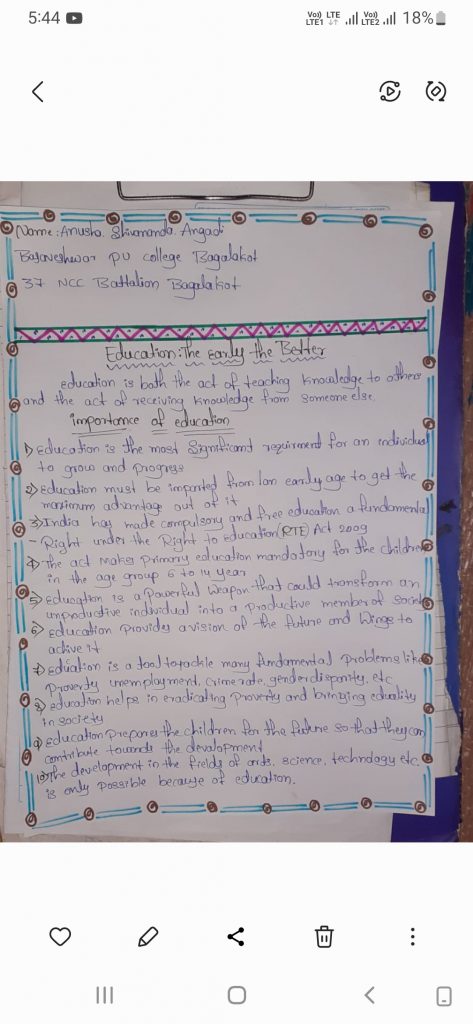 5:44
Vo)) LTE Vo))
LTE1 LTE2 18%
Name: Anusha. Shivananda. Angadi
Basaveshwar PU college Bagalakot
37 NCC Battalion Bagalakot
Education: The early the Better
education is both the act of teaching knowledge to others
and the act of receiving knowledge from someone else.
importance of education
1) Education is the most significant requirment for an individual
to grow and progress
2) Education must be imparted from an early age to get the
maximum advantage out of it
3) India has made compulsory and free education a fundamental
- Right under the Right to Education (RTE) Act 2009
4) The act makes primary education mandatory for the children
in the age group 6 to 14 year
5) Education is a powerful weapon that could transform an
unproductive individual into a productive member of Society
6) Education provides a vision of the future and wings to
achive it
7) Education is a tool to tackle many fundamental problems like
Proverty unemployment, crime rate, gender disparity, etc
8) education helps in eradicating Proverty and bringing equality
in society
9) Education prepares the children for the future so that they can
contribute towards the development
10) The development in the fields of arts. science, technology etc.
is only possible because of education.